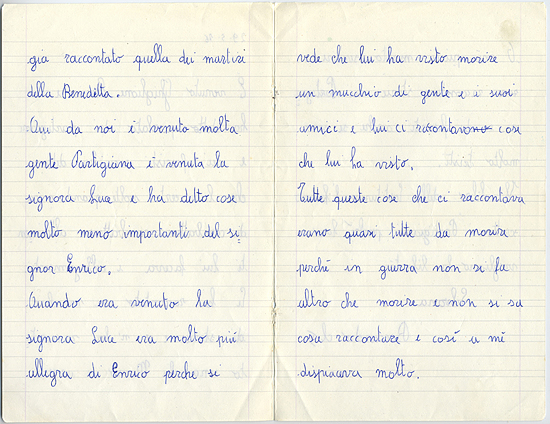 già raccontato quella dei martiri
della Benedetta.
Qui da noi è venuto molta
gente Partigiana è venuta la
signora Luce e ha detto cose
molto meno importanti del si=
gnor Enrico.
Quando era venuto ha
signora Luce era molto più
allegra di Enrico perche si
vede che lui ha visto morire
un mucchio di gente e i suoi
amici e lui ci raccontavano cose
che lui ha visto.
Tutte queste cose che ci raccontava
erano quasi tutte da morire
perchè in guerra non si fa
altro che morire e non si sa
cosa raccontare e così a mè
dispiaceva molto.